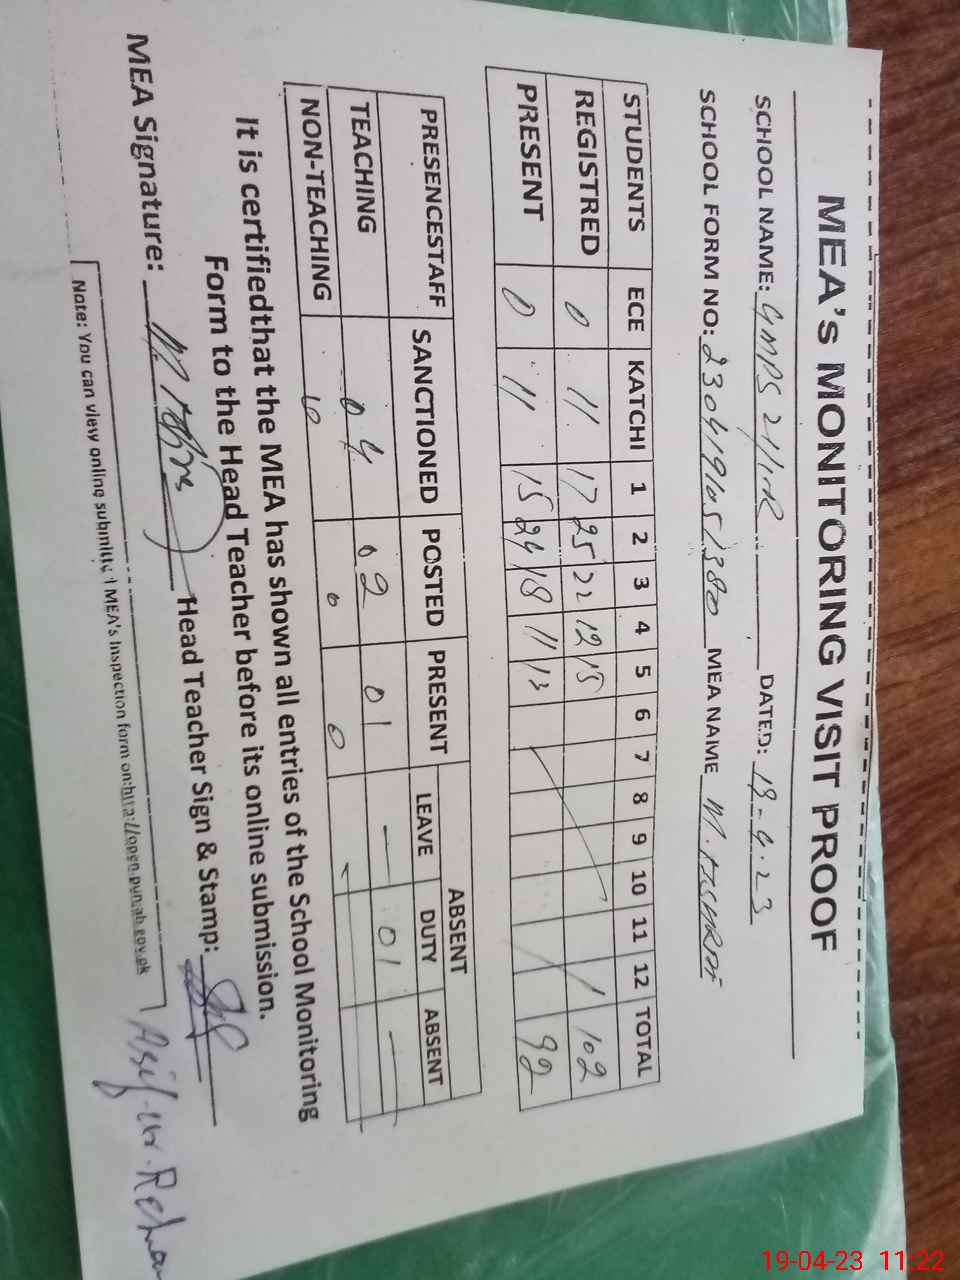 MEA's MONITORING VISIT PROOF
SCHOOL NAME: GMPS 21/11-R DATED: 19-4-23
SCHOOL FORM NO: 230419651380 MEA NAME M.
STUDENTS ECE KATCHI 1 2 3 4 5 6 7 8 9 10 11 12 TOTAL
REGISTRED 0 11 17 25 22 12 15 102
PRESENT 0 11 15 24 18 11 13 92
PRESENCESTAFF SANCTIONED POSTED PRESENT ABSENT
LEAVE DUTY ABSENT
TEACHING 04 02 01 — 01 —
NON-TEACHING 0 0 0
It is certifiedthat the MEA has shown all entries of the School Monitoring
Form to the Head Teacher before its online submission.
MEA Signature: Head Teacher Sign & Stamp:
Asif-ur-Rehman
Note: You can view online submitted MEA's Inspection form on:http://open.punjab.gov.pk
19-04-23 11:22